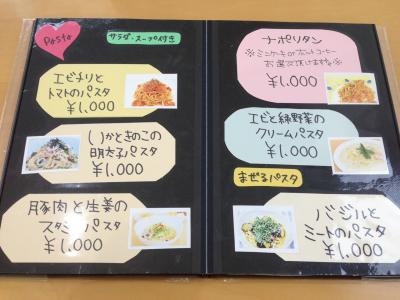 Pasta
サラダ・スープ付き
エビチリと
トマトのパスタ
¥1,000
いかときのこの
明太子パスタ
¥1,000
豚肉と生姜の
スタミナパスタ
¥1,000
ナポリタン
※ミニケーキorホットコーヒー
お選び頂けます※
¥1,000
エビと緑野菜の
クリームパスタ
¥1,000
まぜるパスタ
バジルと
ミートのパスタ
¥1,000